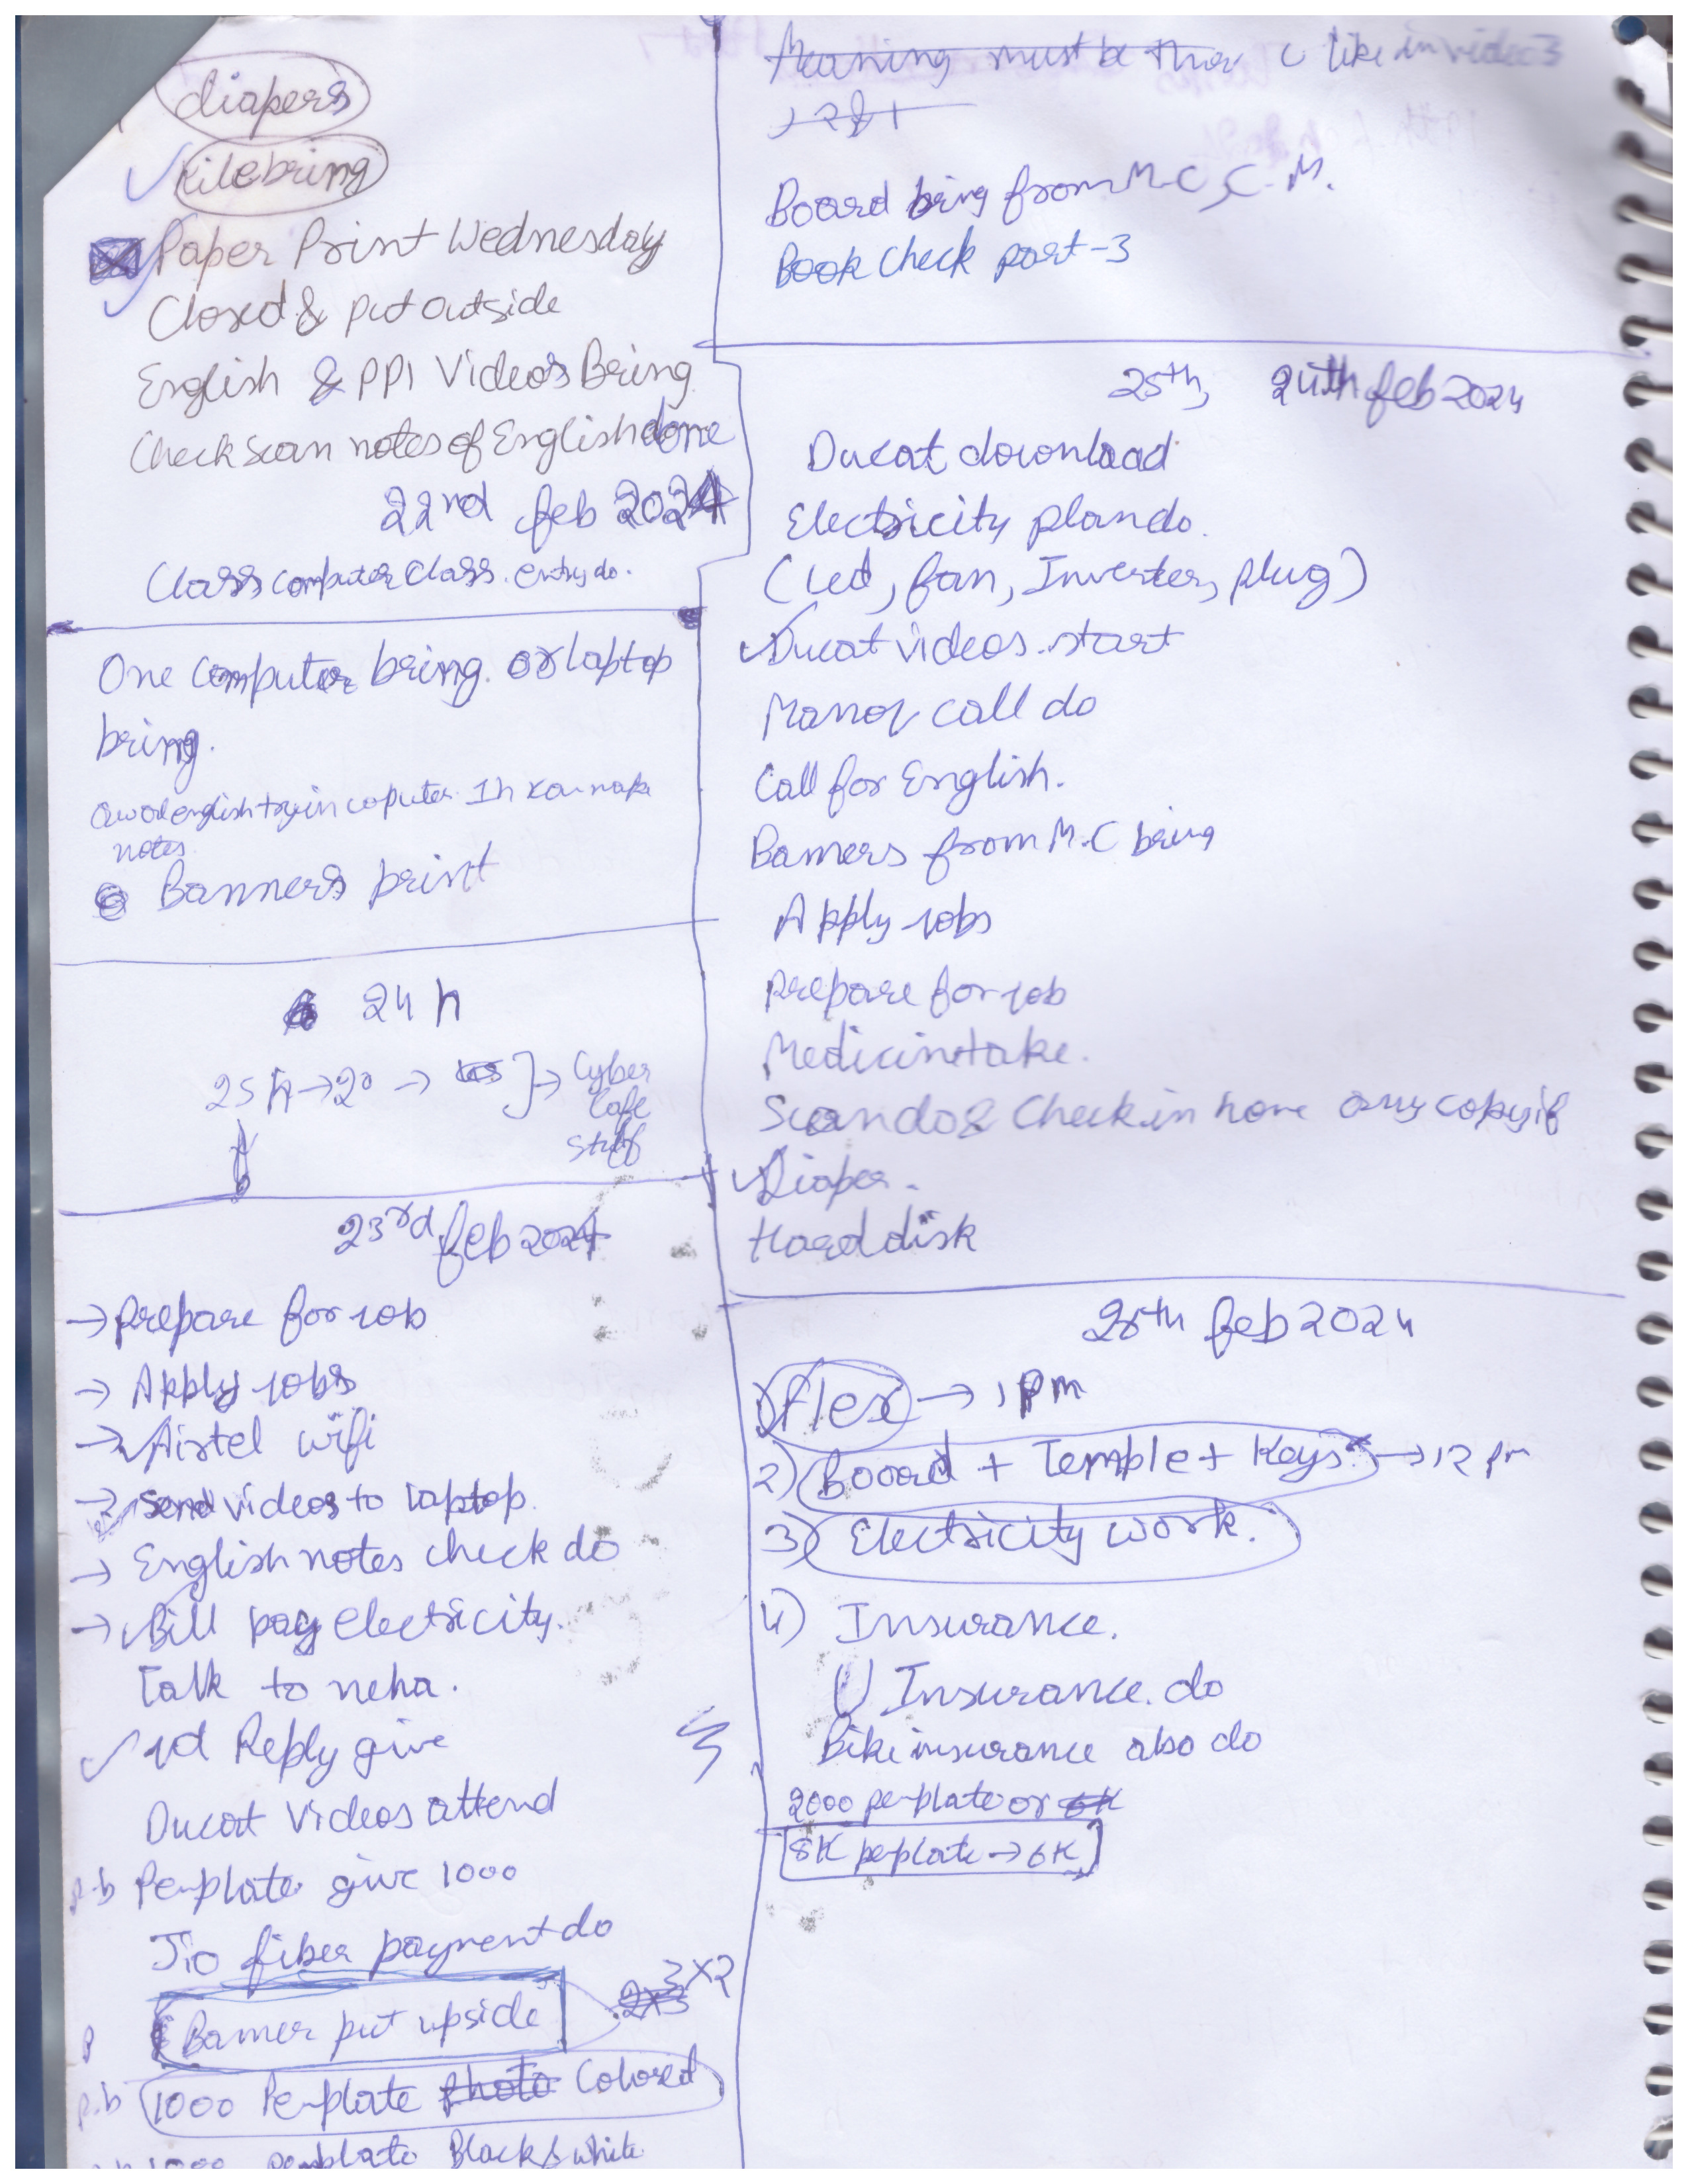 diapers
file bring
Paper Print Wednesday
Closed & put outside
English & PPI Videos Bring
Check scan notes of English done
22nd feb 2024
Class computer class. entry do.
One computer bring. or laptop
bring.
notes
Banners print
24 h
25 h → 20 → → Cyber
Cafe
stuff
23rd feb 2024
→ Prepare for job
→ Apply jobs
→ Airtel wifi
→ Send videos to laptop.
→ English notes check do
→ Bill pay electricity.
Talk to neha.
Reply give
Ducat Videos attend
P.b Pemplate give 1000
Jio fiber payment do
Banner put upside 2x3 3x2
P.b 1000 Pemplate photo Colored
1000 pemplate Black & white
Meaning must be there like in video 3
, 2 & 1
Board bring from M.C, C.M.
Book check part-3
25th, 24th feb 2024
Ducat download
Electricity plan do.
(Led, fan, Inverter, plug)
Ducat videos start
Manoj call do
Call for English.
Banners from M.C bring
Apply jobs
Prepare for job
Medicine take.
Scan do & Check in home any copy if
Diaper.
Hard disk
25th feb 2024
1) Flex → 1 pm
2) Board + Temple + Keys → 12 pm
3) Electricity work.
4) Insurance.
1) Insurance. do
Bike insurance also do
2000 pemplate or 6K
8K pemplate → 6K